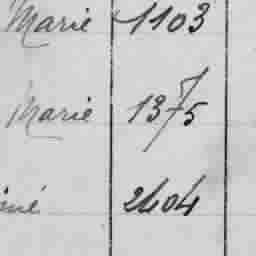 Marie 1103
Marie 1375
2404